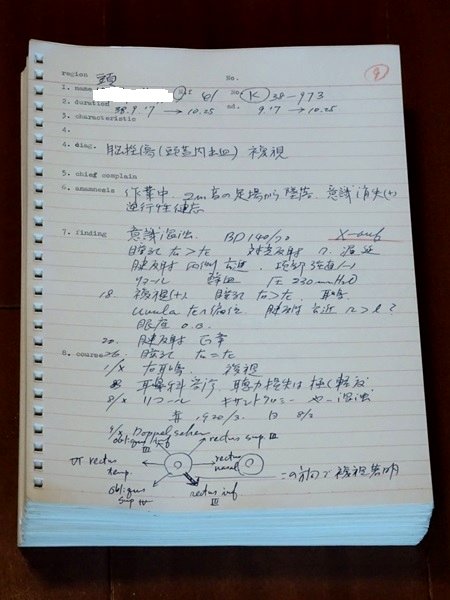 region 頭 No. 9
1. name 61 No. K 38-973
2. duration 38.9.17 → 10.25 ad. 9.17 → 10.25
3. characteristic
4.
4. diag. 脳挫傷(頭蓋内出血) 複視
5. chief complain
6. anamnesis 作業中、2m高の足場から墜落 意識消失(+)
逆行性健忘
7. finding 意識溷濁 BD 140/70
瞳孔 右>左 対光反射 遅延
腱反射 両側亢進、項部強直(-)
リコール 血 圧 230mmH2O
18. 複視(+) 瞳孔 右>左 耳鳴
uvula 左へ偏位 腱反射 亢進 r>l?
眼底 o.B.
20. 腱反射 正常
8. course 26. 瞳孔 右=左
1/X 右耳鳴 複視
耳鼻科 聴力損失は極く軽度
8/X リコール キサントクロミー
9/X Doppelsehen
obliquus inf III rectus sup. III
VI rectus temp. rectus nasal
obliquus sup IV rectus inf III
この方向で複視